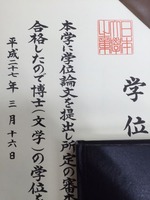 学位
本学に学位論文を提出し所定の審
合格したので博士（文学）の学位を
平成二十七年三月十六日